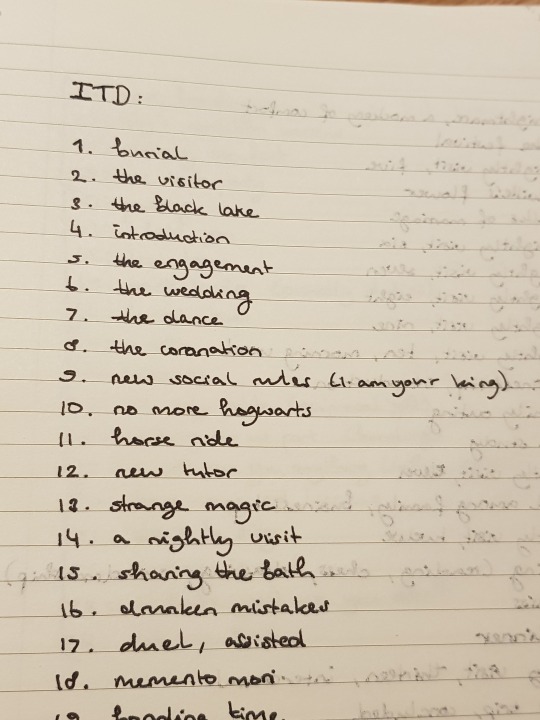 ITD:
1. burial
2. the visitor
3. the black lake
4. introduction
5. the engagement
6. the wedding
7. the dance
8. the coronation
9. new social rules (I am your king)
10. no more hogwarts
11. horse ride
12. new tutor
13. strange magic
14. a nightly visit
15. sharing the bath
16. drunken mistakes
17. duel, assisted
18. memento mori
19. bonding time